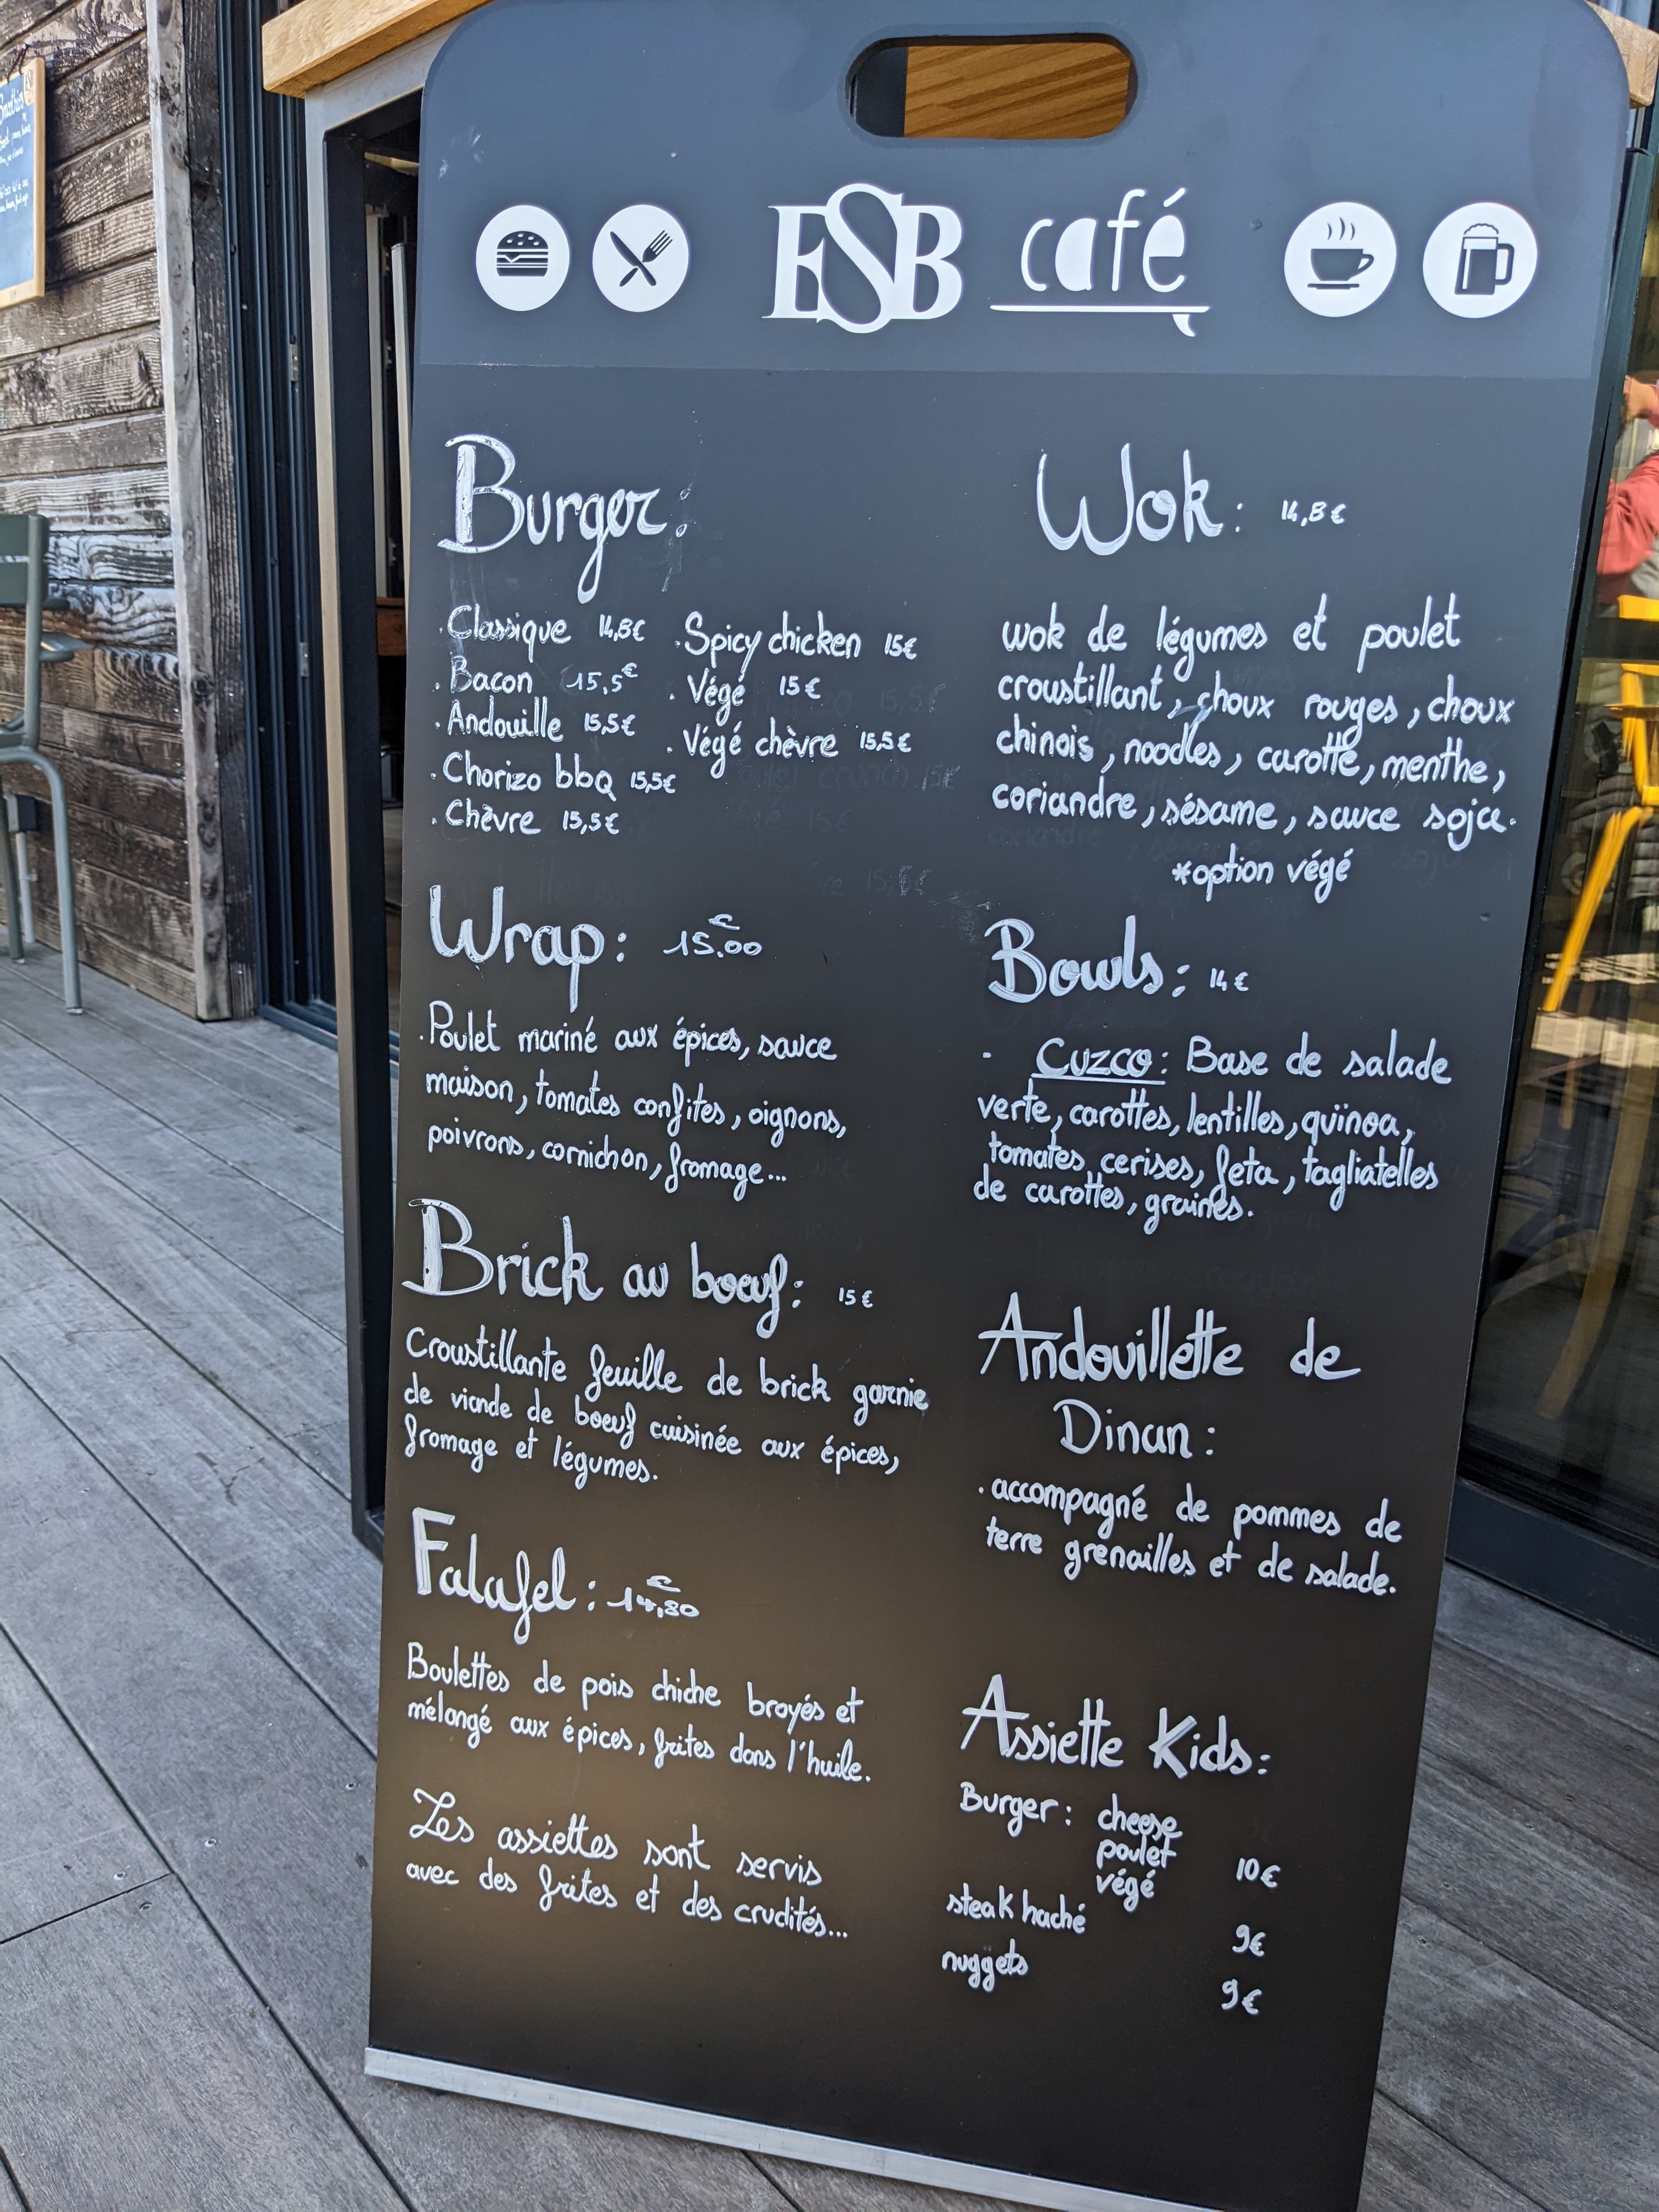 ESB café
Burger:
. Classique 14,8€
. Bacon 15,5€
. Andouille 15,5€
. Chorizo bbq 15,5€
. Chèvre 15,5€
. Spicy chicken 15€
. Végé 15€
. Végé chèvre 15,5€
Wrap: 15.00€
. Poulet mariné aux épices, sauce
maison, tomates confites, oignons,
poivrons, cornichon, fromage...
Brick au boeuf: 15€
Croustillante feuille de brick garnie
de viande de boeuf cuisinée aux épices,
fromage et légumes.
Falafel: 14,80€
Boulettes de pois chiche broyés et
mélangé aux épices, frites dans l'huile.
Les assiettes sont servis
avec des frites et des crudités...
Wok: 14,8€
wok de légumes et poulet
croustillant, choux rouges, choux
chinois, noodles, carotte, menthe,
coriandre, sésame, sauce soja.
*option végé
Bowls: 14€
- Cuzco: Base de salade
verte, carottes, lentilles, quinoa,
tomates cerises, feta, tagliatelles
de carottes, graines.
Andouillette de
Dinan:
. accompagné de pommes de
terre grenailles et de salade.
Assiette Kids:
Burger: cheese
poulet
végé 10€
steak haché 9€
nuggets 9€